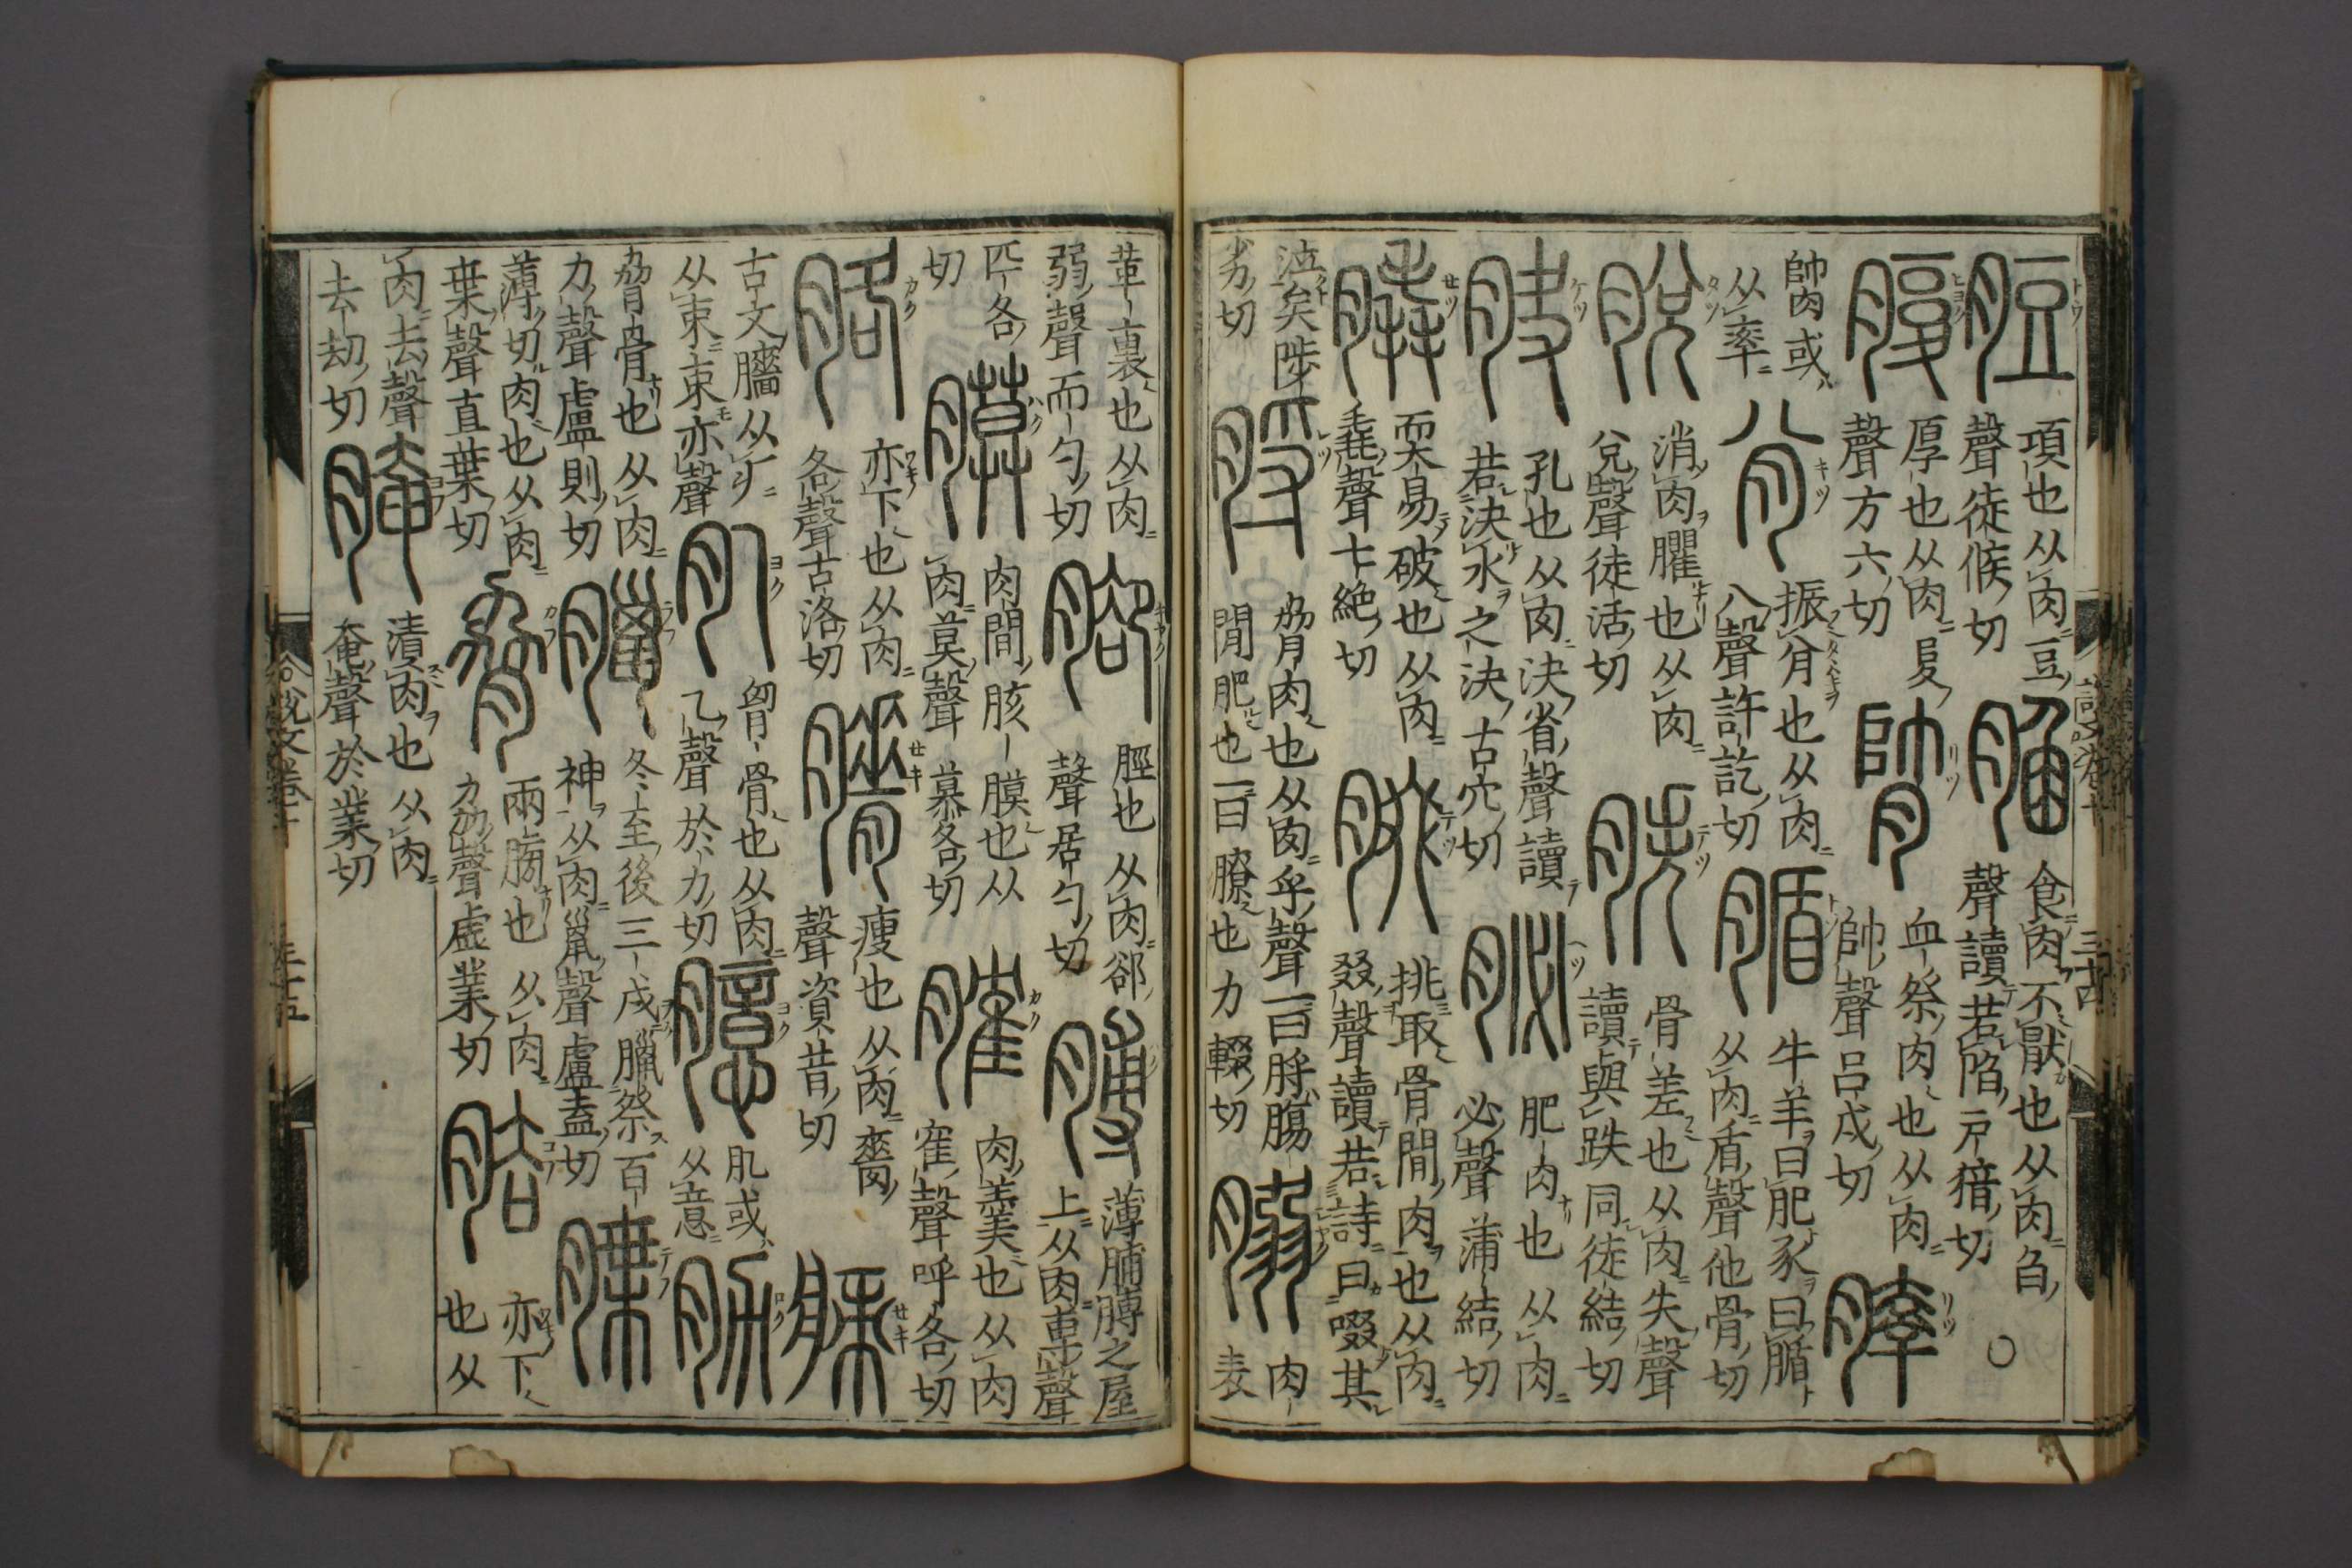 脰
項也从肉豆
聲徒候切
䐄
食肉不猒也从肉臽
聲讀若陷戸猪切
○
腹
厚也从肉复
聲方六切
血祭肉也从肉
帥聲呂戌切
膟
或
从率
振也从肉
八聲許訖切
腯
牛羊曰肥豕曰腯
从肉盾聲他骨切
脫
消肉臞也从肉
兌聲徒活切
胅
骨差也从肉失聲
讀與跌同徒結切
孔也从肉決省聲讀
若決水之決古穴切
䏟
肥肉也从肉
必聲蒲結切
膬
耎易破也从肉
毳聲七絶切
腏
挑取骨間肉也从肉
叕聲讀若詩曰啜其
泣矣陟
劣切
脟
脅肉也从肉寽聲一曰脟腸
間肥也一曰膫也力輟切
䐞
肉表
革裏也从肉
弱聲而勺切
腳
脛也从肉卻
聲居勺切
膊
薄脯膊之屋
上从肉尃聲
匹各
切
膜
肉間胲膜也从
肉莫聲慕各切
䐨
肉羹也从肉
隺聲呼各切
胳
亦下也从肉
各聲古洛切
膌
瘦也从肉脊
聲資昔切
古文膌从疒
从朿朿亦聲
肊
匈骨也从肉
乙聲於力切
臆
肊或
从意
肋
脅骨也从肉
力聲盧則切
臘
冬至後三戌臘祭百
神从肉巤聲盧盍切
牒
薄切肉也从肉
枼聲直葉切
脅
兩膀也从肉
劦聲虛業切
胠
亦下也从
肉去聲
去劫切
腌
漬肉也从肉
奄聲於業切
說文卷十 三十四
說文卷十 三十五